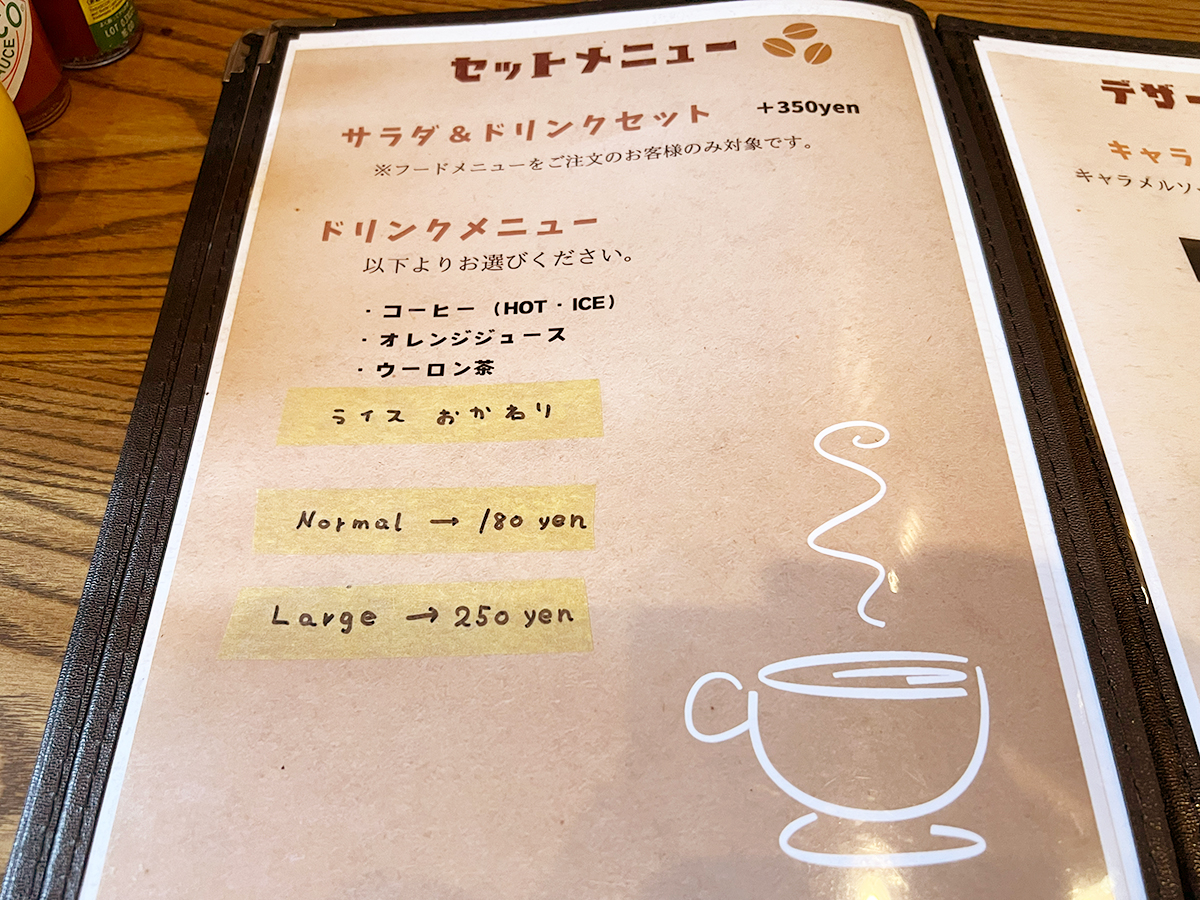 CO
SAUCE
LOT
セットメニュー
サラダ&ドリンクセット +350yen
※フードメニューをご注文のお客様のみ対象です。
ドリンクメニュー
以下よりお選びください。
・コーヒー (HOT・ICE)
・オレンジジュース
・ウーロン茶
ライス おかわり
Normal → 180 yen
Large → 250 yen
デザー
キャラ
キャラメルソー